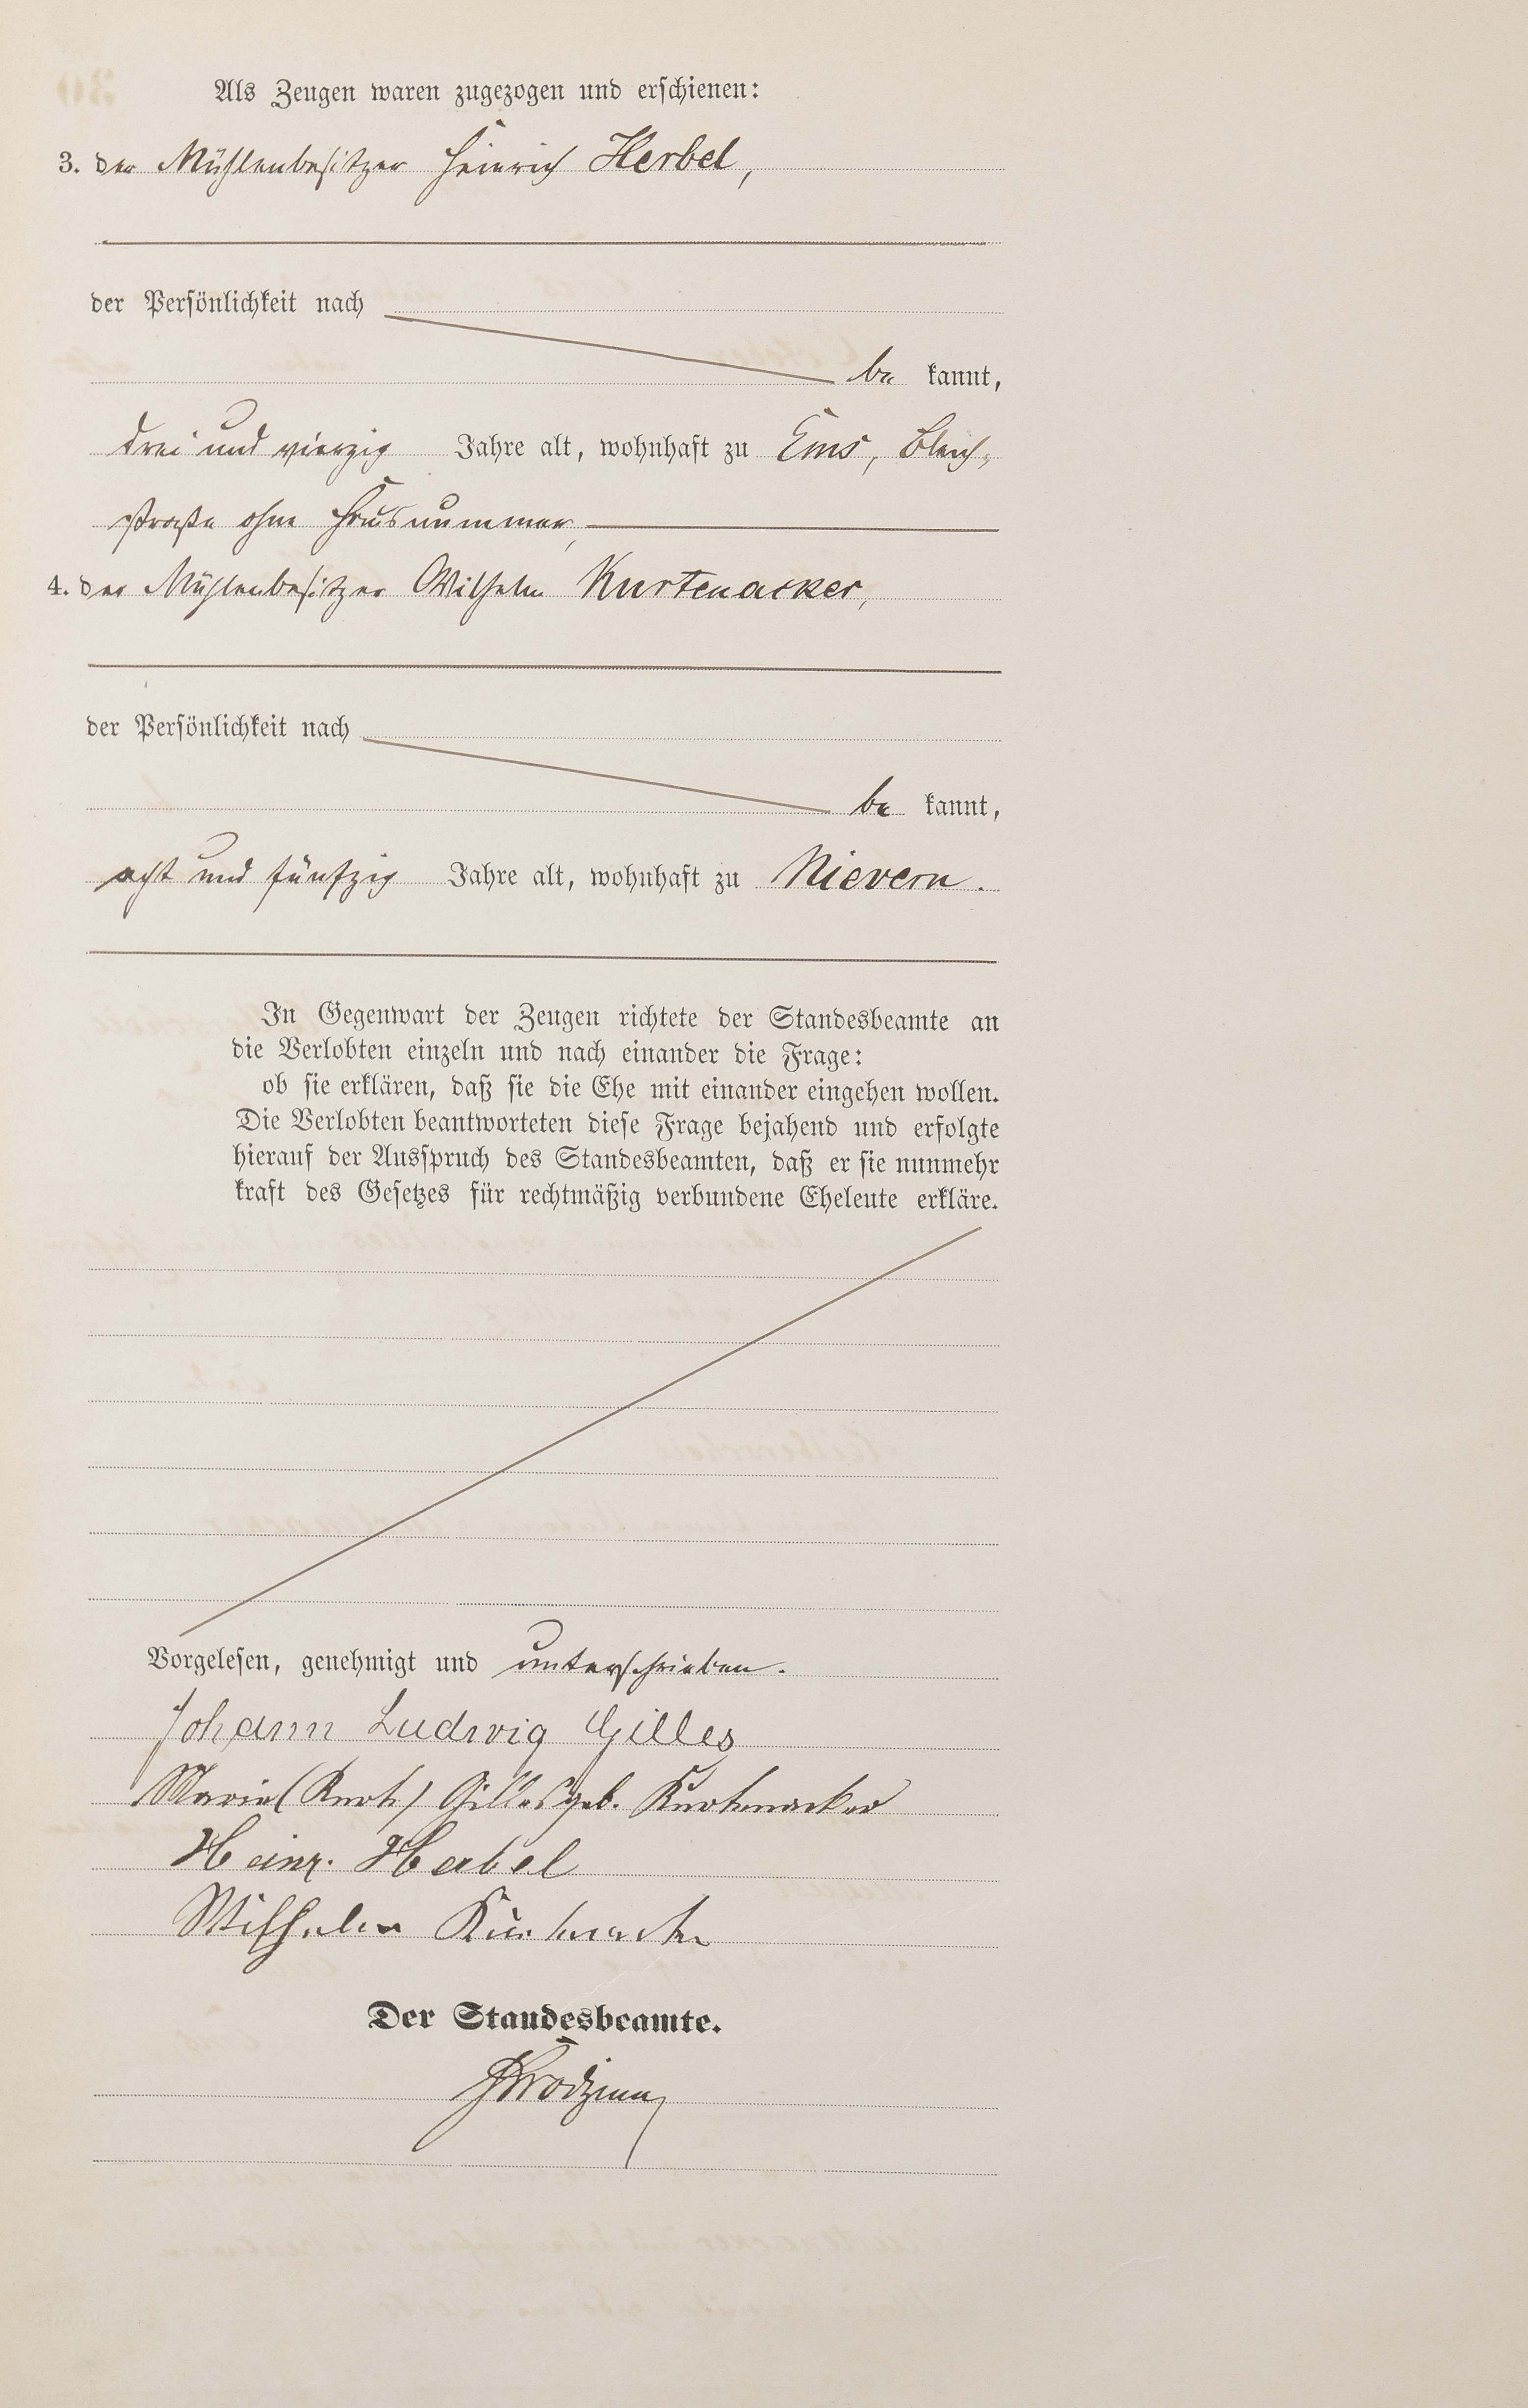 Als Zeugen waren zugezogen und erschienen:
3. der Mühlenbesitzer Heinrich Herbel,
der Persönlichkeit nach
be kannt,
drei und vierzig Jahre alt, wohnhaft zu Ems, Bleich-
straße ohne Hausnummer,
4. der Mühlenbesitzer Wilhelm Kurtenacker,
der Persönlichkeit nach
be kannt,
acht und fünfzig Jahre alt, wohnhaft zu Nievern.
In Gegenwart der Zeugen richtete der Standesbeamte an
die Verlobten einzeln und nach einander die Frage:
ob sie erklären, daß sie die Ehe mit einander eingehen wollen.
Die Verlobten beantworteten diese Frage bejahend und erfolgte
hierauf der Ausspruch des Standesbeamten, daß er sie nunmehr
kraft des Gesetzes für rechtmäßig verbundene Eheleute erkläre.
Vorgelesen, genehmigt und unterschrieben.
Johann Ludwig Gilles
Maria Gilles geb. Kurtenacker
Heinr. Herbel
Wilhelm Kurtenacker
Der Standesbeamte.